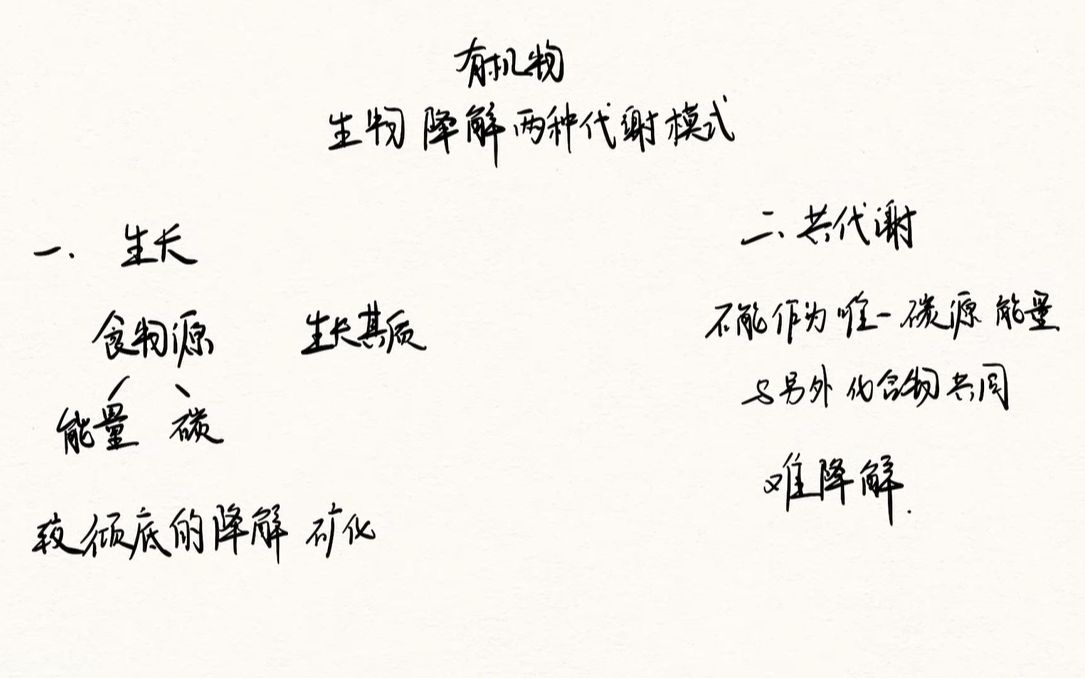 有机物
生物降解两种代谢模式
一. 生长
食物源 生长基质
能量 碳
较彻底的降解 矿化
二、共代谢
不能作为唯一碳源 能量
与另外化合物共同
难降解.